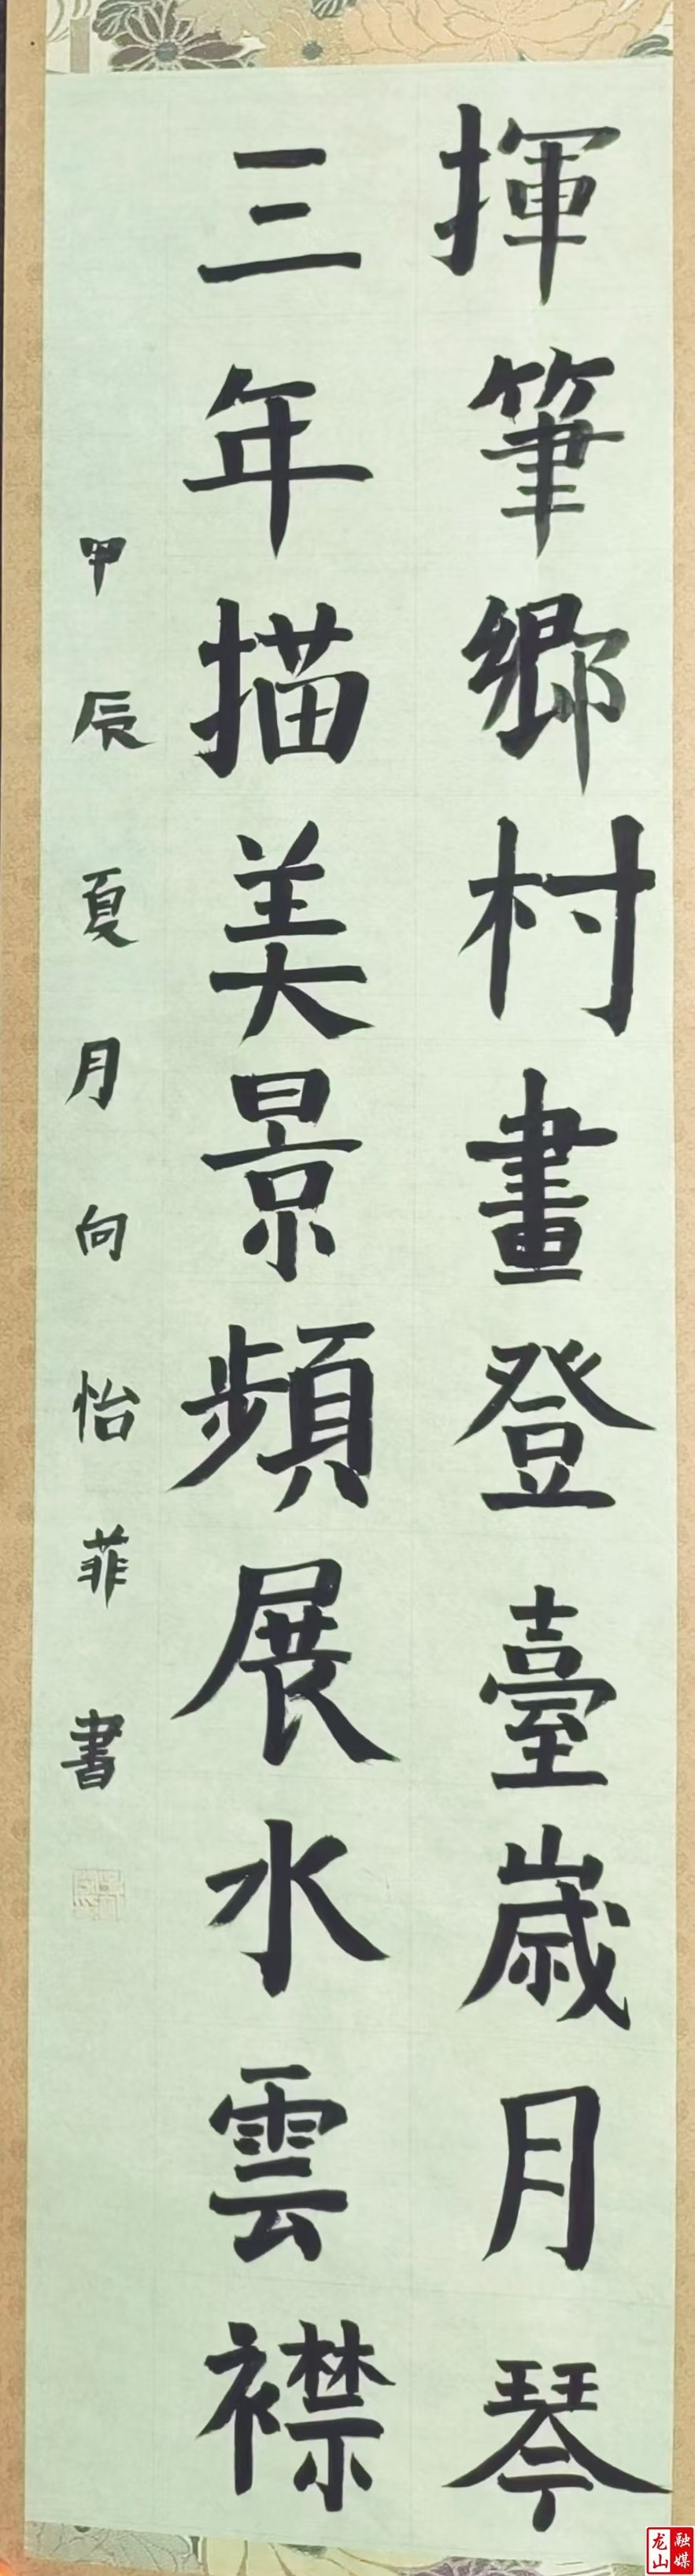 揮筆鄉村畫登臺歲月琴
三年描美景頻展水雲襟
甲辰夏月向怡菲書
融媒
龙山